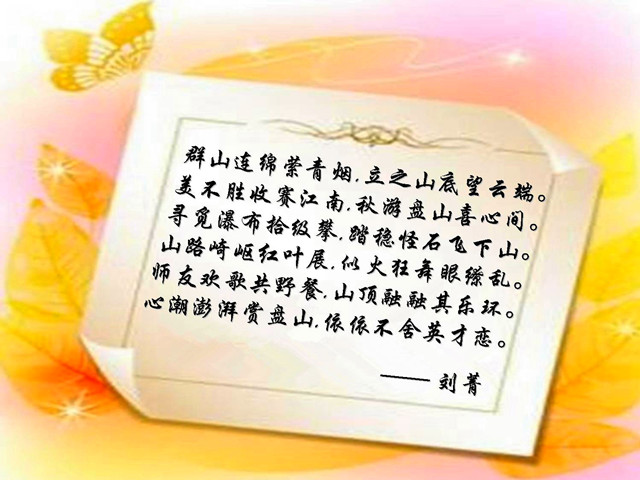 群山连绵萦青烟,立之山底望云端。
美不胜收赛江南,秋游盘山喜心间。
寻觅瀑布拾级攀,踏稳怪石飞下山。
山路崎岖红叶展,似火狂舞眼缭乱。
师友欢歌共野餐,山顶融融其乐环。
心潮澎湃赏盘山,依依不舍英才恋。
—— 刘菁